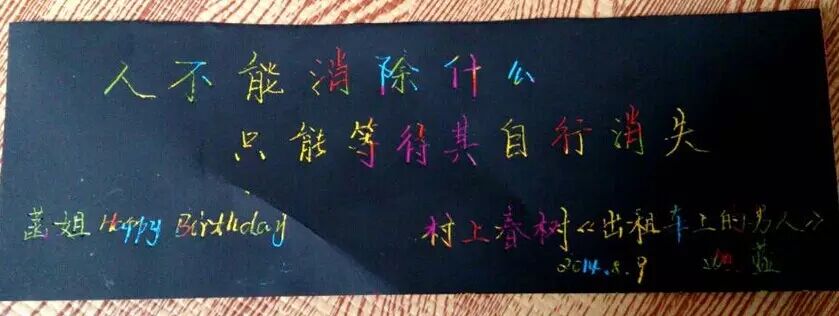 人不能消除什么
只能等得其自行消失
菡姐 Happy Birthday
村上春树《出租车上的男人》
2014.8.9 蓝